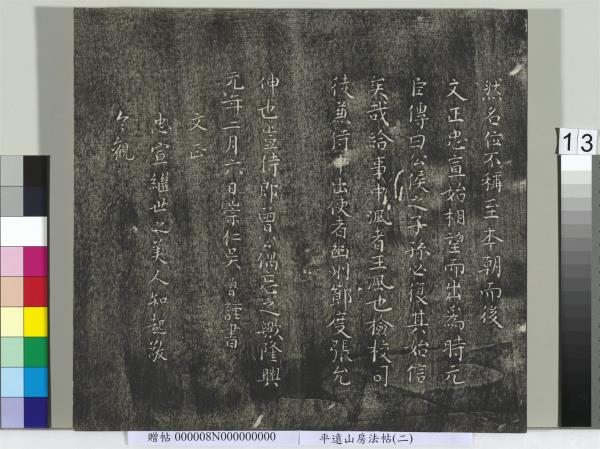 然名位不稱至本朝而後
文正忠宣始相望而出為時元
臣傳曰公侯之子孫必復其始信
矣哉給事中渢者王渢也檢校司
徒兼侍中出使者幽州節度張允
伸也豈侍郎曾公偶忘之歟隆興
元年二月六日崇仁吳曾謹書
文正
忠宣繼世之美人知起敬
今觀
13
贈帖 000008N000000000 平遠山房法帖(二)